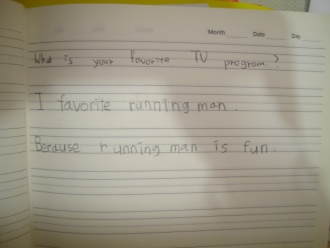 Month Date Day
What is your favorite TV program?
I favorite running man.
Because running man is fun.